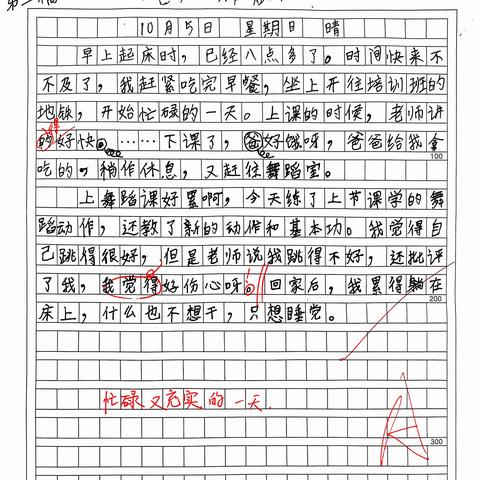 10月5日 星期日 晴
早上起床时，已经八点多了。时间快来不
不及了，我赶紧吃完早餐，坐上开往培训班的
地铁，开始忙碌的一天。上课的时候，老师讲
的好快。……下课了，爸好饿呀，爸爸给我拿
得
吃的，稍作休息，又赶往舞蹈室。
100
上舞蹈课好累啊，今天练了上节课学的舞
蹈动作，还教了新的动作和基本功。我觉得自
己跳得很好，但是老师说我跳得不好，还批评
了我，我觉得好伤心呀。回家后，我累得躺在
床上，什么也不想干，只想睡觉。
200
忙碌又充实的一天
A
300